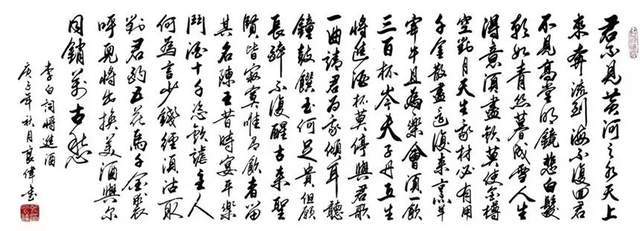 君不見黃河之水天上
來奔流到海不復回君
不見高堂明鏡悲白髮
朝如青絲暮成雪人生
得意須盡歡莫使金樽
空對月天生我材必有用
千金散盡還復來烹羊
宰牛且為樂會須一飲
三百杯岑夫子丹丘生
將進酒杯莫停與君歌
一曲請君為我傾耳聽
鐘鼓饌玉何足貴但願
長醉不復醒古來聖
賢皆寂寞唯有飲者留
其名陳王昔時宴平樂
鬥酒十千恣歡謔主人
何為言少錢徑須沽取
對君酌五花馬千金裘
呼兒將出換美酒與爾
同銷萬古愁
李白詞將進酒
庚子年秋月偉書